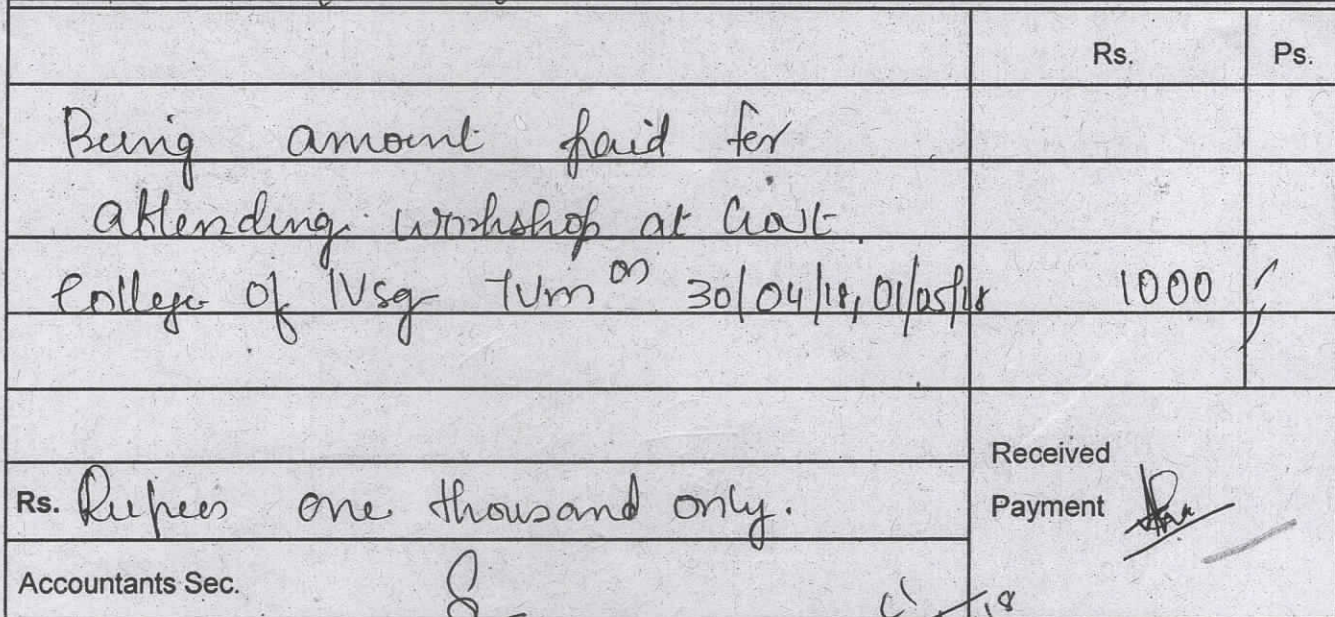 Rs. Ps.
Being amount paid for
attending workshop at Govt
College of NSg TVm on 30/04/18, 01/05/18 1000
Received
Rs. Rupees one thousand only.
Payment
Accountants Sec.